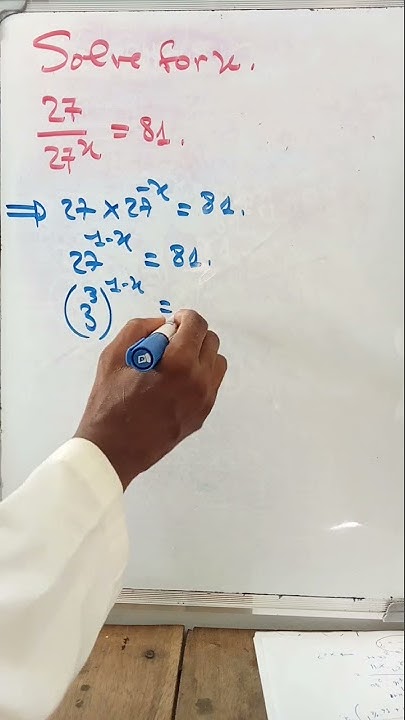 Solve for x.
27/27^x = 81.
⇒ 27 × 27^-x = 81.
27^1-x = 81.
(3^3)^1-x =